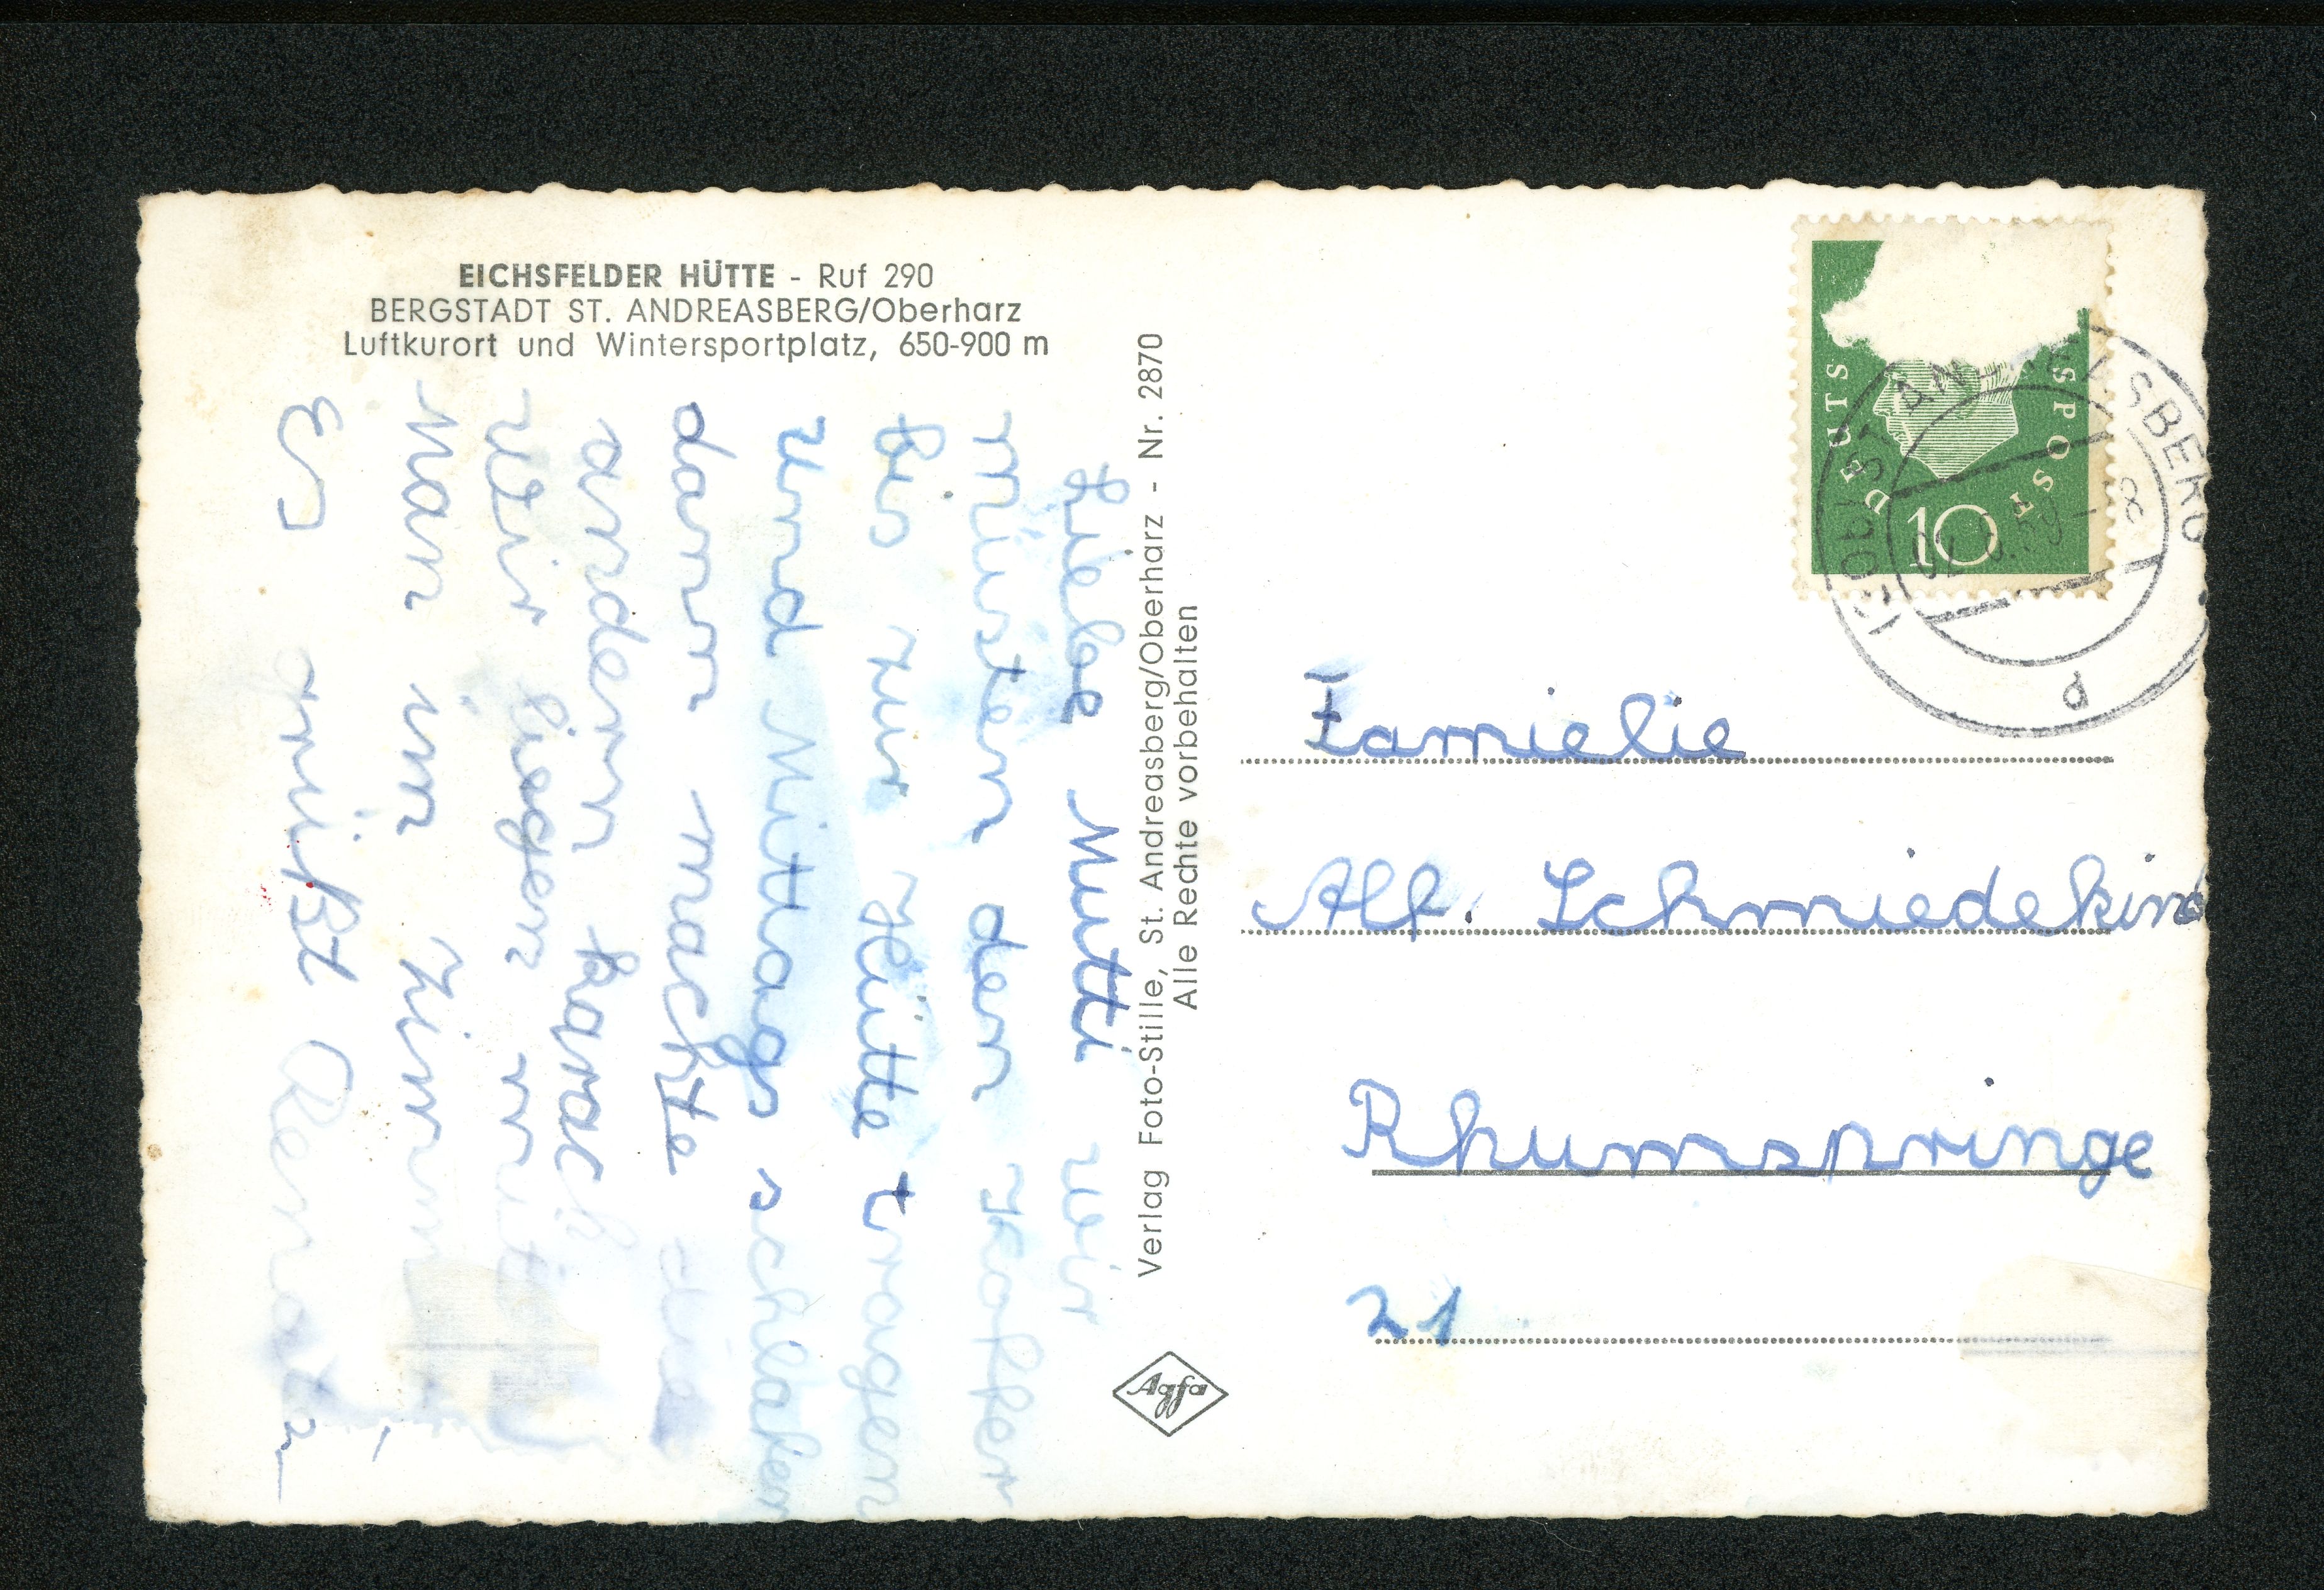 EICHSFELDER HÜTTE - Ruf 290
BERGSTADT ST. ANDREASBERG/Oberharz
Luftkurort und Wintersportplatz, 650-900 m
Liebe Mutti wir
müsten den Koffer
bis zur Hütte tragen
und Mittags schlafen
dann machte die
andern
Wir liegen mit
Man im Zimm
Es grüßt Renate
Verlag Foto-Stille, St. Andreasberg/Oberharz - Nr. 2870
Alle Rechte vorbehalten
Agfa
DEUTSCHE BUNDESPOST
10
ST ANDREASBERG
59 - 18
d
Famielie
Alf. Schmiedekind
Rhumspringe
21